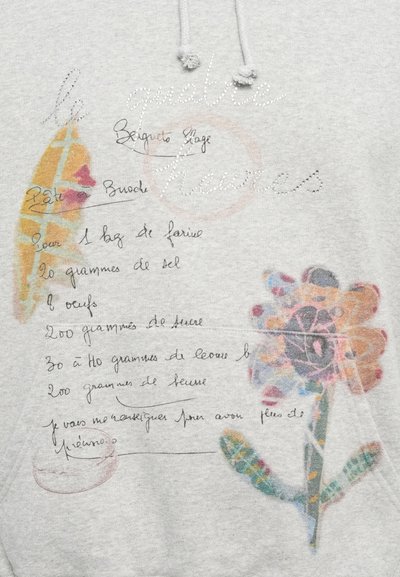 le
quatre
Beignets Stage
heures
Pâte à Brioche
Pour 1 kg de farine
20 grammes de sel
8 oeufs
200 grammes de sucre
30 à 40 grammes de levure b
200 grammes de beurre
je vais me renseigner pour avoir plus de
précisions